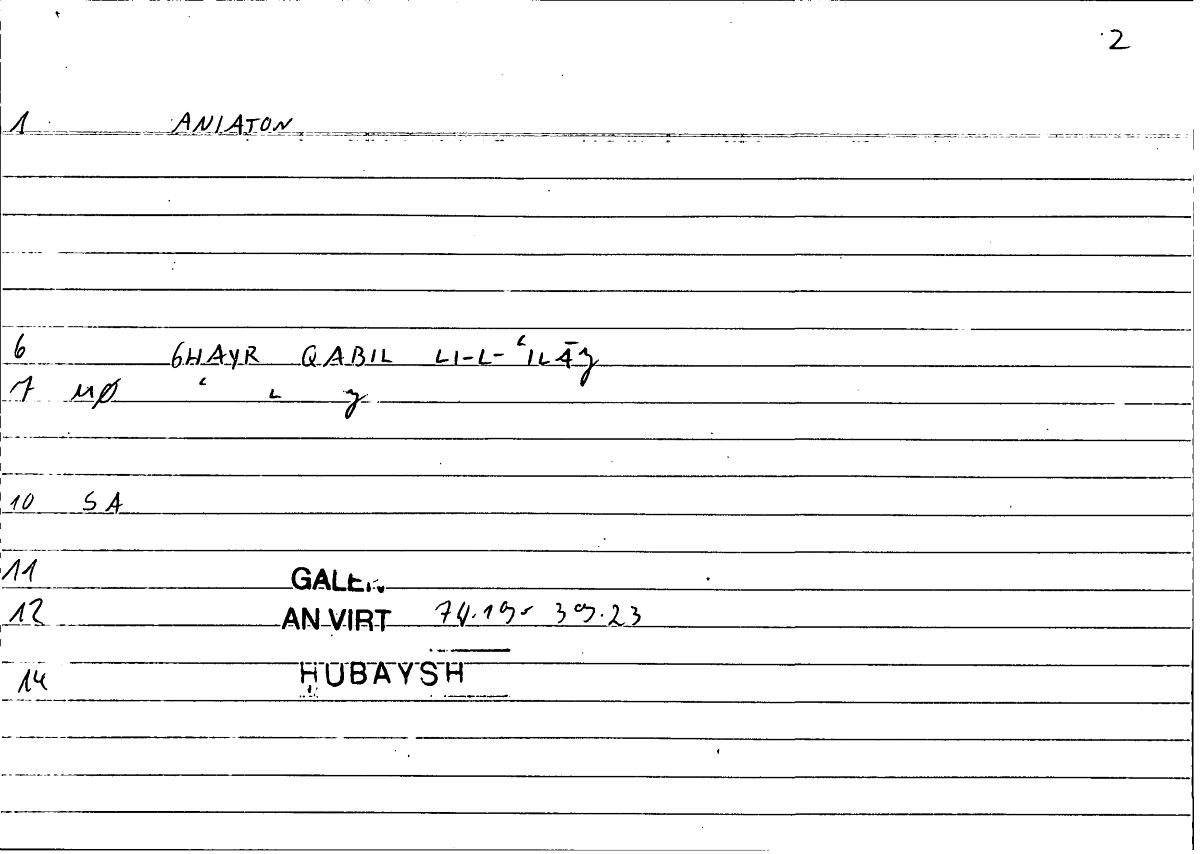 2
1 ANIATON
6 GHAYR QABIL LI-L-ʿILĀʒ
7 MØ ʿ L ʒ
10 SA
11 GALEN
12 AN VIRT 74.19- 39.23
14 ḤUBAYSH